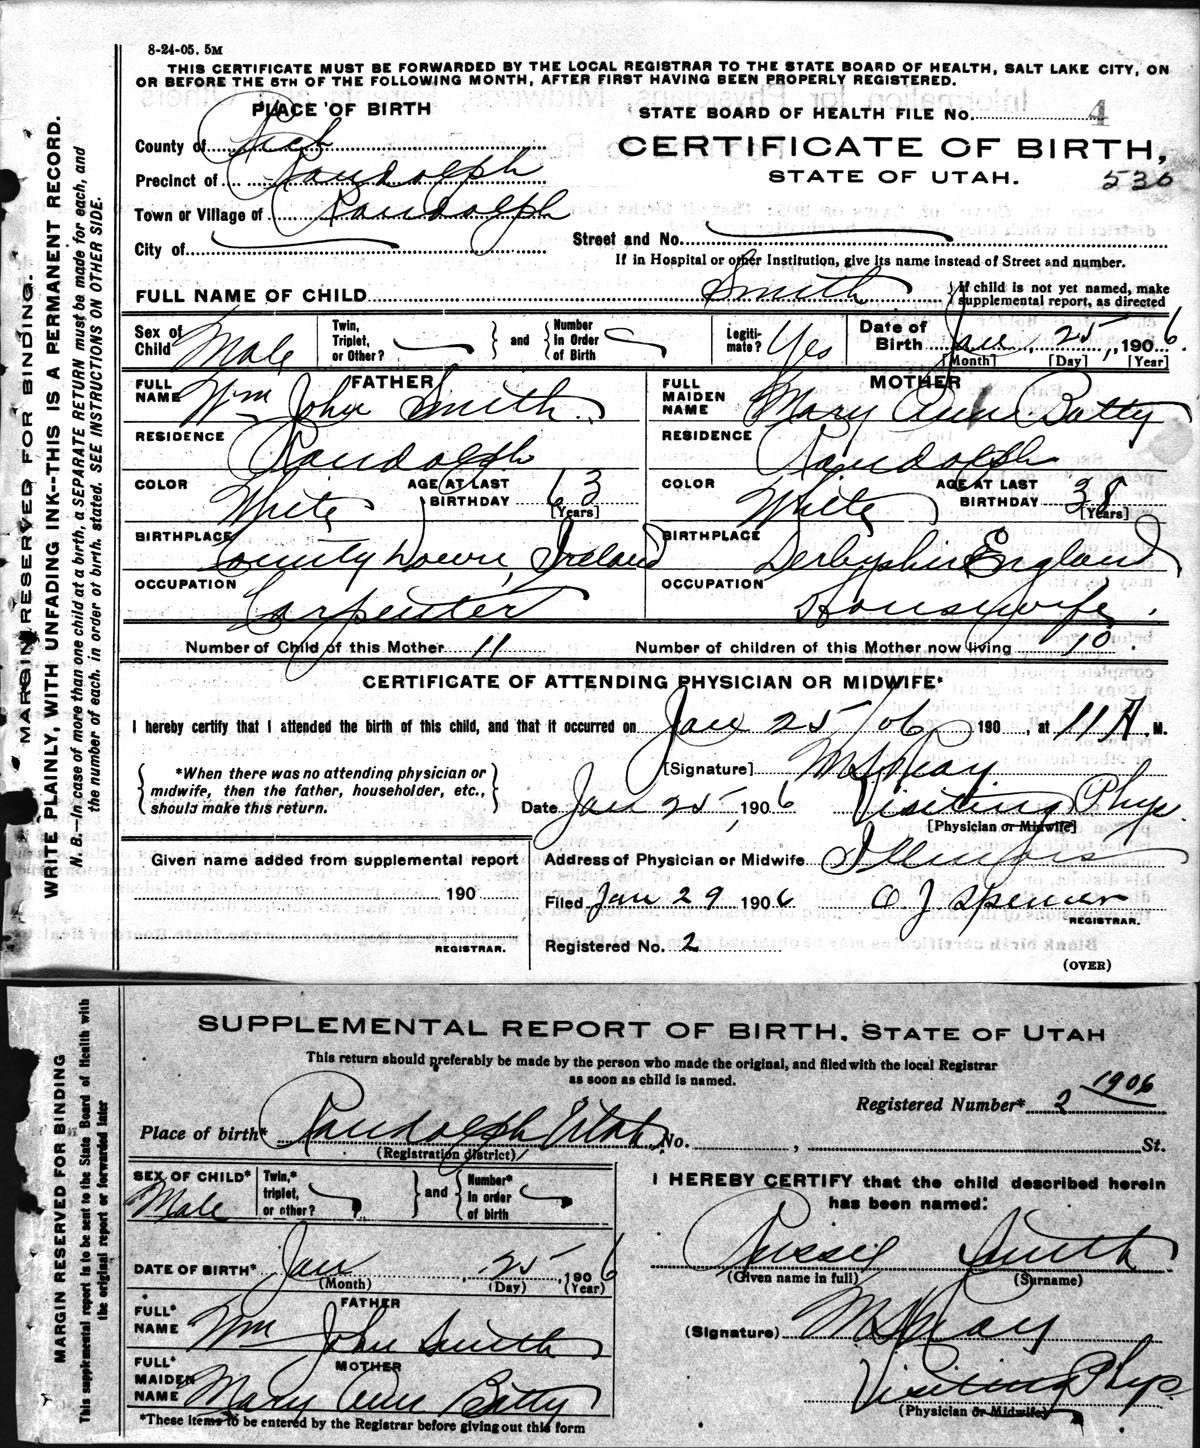 8-24-05. 5M
THIS CERTIFICATE MUST BE FORWARDED BY THE LOCAL REGISTRAR TO THE STATE BOARD OF HEALTH, SALT LAKE CITY, ON
OR BEFORE THE 5TH OF THE FOLLOWING MONTH, AFTER FIRST HAVING BEEN PROPERLY REGISTERED.
PLACE OF BIRTH
STATE BOARD OF HEALTH FILE No. 4
County of Rich
CERTIFICATE OF BIRTH,
Precinct of Randolph
STATE OF UTAH.
536
Town or Village of Randolph
City of
Street and No.
If in Hospital or other Institution, give its name instead of Street and number.
FULL NAME OF CHILD Smith
If child is not yet named, make supplemental report, as directed
Sex of Child Male
Twin, Triplet, or Other?
and
Number In Order of Birth
Legiti-mate? Yes
Date of Birth Jan 25, 1906.
[Month] [Day] [Year]
FATHER
FULL NAME Wm John Smith
MOTHER
FULL MAIDEN NAME Mary Ann Batty
RESIDENCE Randolph
RESIDENCE Randolph
COLOR White
AGE AT LAST BIRTHDAY 63 [Years]
COLOR White
AGE AT LAST BIRTHDAY 38 [Years]
BIRTHPLACE County Down, Ireland
BIRTHPLACE Derbyshir England
OCCUPATION Carpenter
OCCUPATION Housewife.
Number of Child of this Mother 11
Number of children of this Mother now living 10.
CERTIFICATE OF ATTENDING PHYSICIAN OR MIDWIFE*
I hereby certify that I attended the birth of this child, and that it occurred on Jan 25/06 190 , at 11 A. M.
*When there was no attending physician or midwife, then the father, householder, etc., should make this return.
[Signature]
Date Jan 25, 1906
Visiting Phys.
[Physician or Midwife]
Given name added from supplemental report
190
REGISTRAR.
Address of Physician or Midwife Illinois
Filed Jan 29 1906 O. J. Spencer
REGISTRAR.
Registered No. 2
(OVER)
MARGIN RESERVED FOR BINDING.
WRITE PLAINLY, WITH UNFADING INK--THIS IS A PERMANENT RECORD.
N. B.—In case of more than one child at a birth, a SEPARATE RETURN must be made for each, and
the number of each, in order of birth, stated. SEE INSTRUCTIONS ON OTHER SIDE.
SUPPLEMENTAL REPORT OF BIRTH, STATE OF UTAH
This return should preferably be made by the person who made the original, and filed with the local Registrar
as soon as child is named.
Registered Number* 2 1906
Place of birth* Randolph Utah No. , St.
(Registration district)
SEX OF CHILD* Male
Twin,* triplet, or other?
and
Number* In order of birth
I HEREBY CERTIFY that the child described herein
has been named:
DATE OF BIRTH* Jan , 25 , 1906
(Month) (Day) (Year)
Smith
(Given name in full) (Surname)
FATHER
FULL* NAME Wm John Smith
(Signature)
MOTHER
FULL* MAIDEN NAME Mary Ann Batty
Visiting Phys.
(Physician or Midwife)
*These items to be entered by the Registrar before giving out this form
MARGIN RESERVED FOR BINDING
This supplemental report is to be sent to the State Board of Health with
the original report or forwarded later